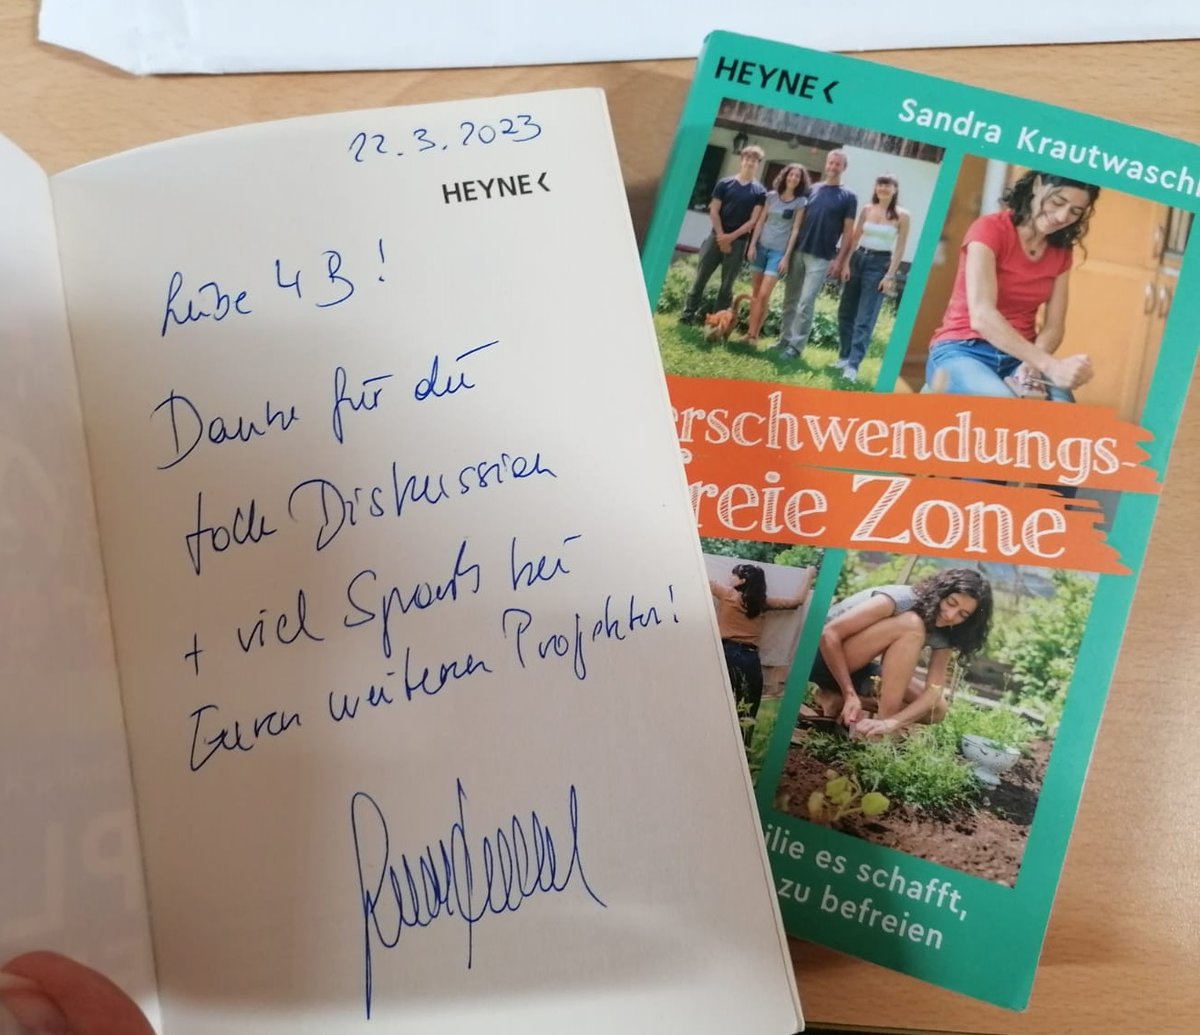 22.3.2023
HEYNE<
Liebe 4B!
Danke für die
tolle Diskussion
+ viel Spaß bei
Euren weiteren Projekten!
HEYNE<
Sandra Krautwaschl
erschwendungs-
freie Zone
ilie es schafft,
zu befreien